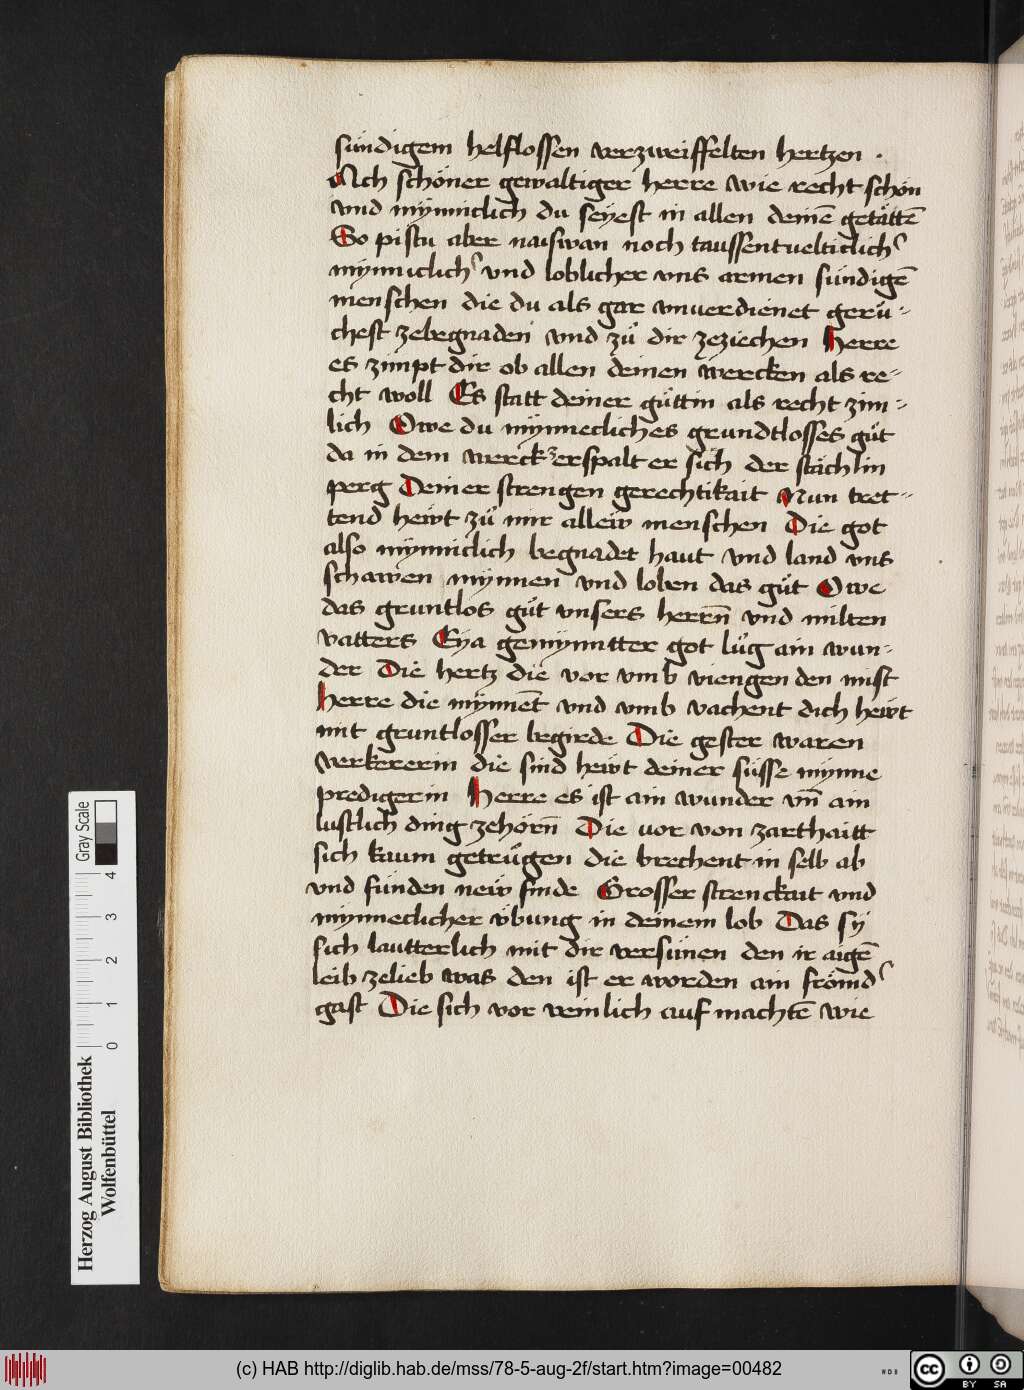 sündigem helflossen verzweiffelten hertzen .
Ach schöner gewaltiger herre wie recht schön
vnd mÿnniclich du seÿest in allen deinē getättē
So pistu aber naiswan noch taussentuelticlich͛
mÿnniclich͛ vnd loblicher vns armen sündigē
menschen die du als gar vnuerdienet gerů-
chest zebegnaden vnd zů dir zeziechen Herre
es zimpt dir ob allen deinen wercken als re-
cht woll Es statt deiner güttin als recht zim-
lich Owe du mÿnnecliches grundtlosses gůt
da in dem werck zerspalt er sich der stächlin
perg Deiner strengen gerechtikait Nun tret-
tend hewt zů mir allew menschen Die got
also mÿnniclich begnadet haut vnd land vns
schawen mÿnnen vnd loben das gůt Owe
das gruntlos gůt vnsers herrn̄ vnd milten
vatters Eÿa gemÿnntter got lůg ain wun-
der Die hertz die vor vmb viengen den mist
Herre die mÿnnēt vnd vmb vachent dich hewt
mit gruntlosser begirde Die gester waren
verkererin die sind hewt deiner süsse mÿnne
predigerin Herre es ist ain wunder vn̄ ain
lustlich ding zehörn̄ Die vor von zarthaitt
sich kaum getrůgen die brechent in selb ab
vnd fünden new finde Grosser strenckait vnd
mÿnneclicher übung in deinem lob Das sÿ
sich lautterlich mit dir versünen den ir aigē
leib zelieb was den ist er worden ain frömd͛
gast Die sich vor veinlich auf machtē wie
Herzog August Bibliothek
Wolfenbüttel
0 1 2 3 4
Gray Scale
(c) HAB http://diglib.hab.de/mss/78-5-aug-2f/start.htm?image=00482
WDB
cc BY SA